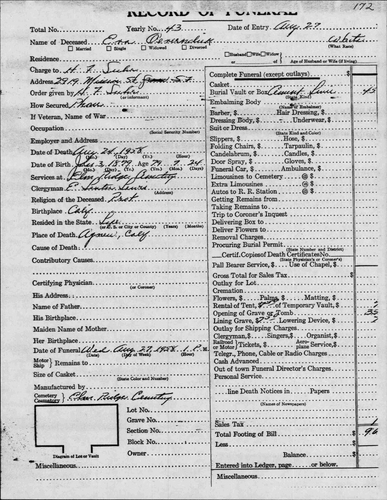 172
RECORD OF FUNERAL
Total No. Yearly No. 43 Date of Entry Aug. 27
Name of Deceased Cora White
Married Single Widowed Divorced (What Race)
Husband Wife Widow of
Residence Age of Husband or Wife (if living)
Charge to H. F. Suhr
2919 Mission St. S.F.
Order given by H. F. Suhr
(or informant)
How Secured Phone
If Veteran, Name of War
Occupation
(Social Security Number)
Employer and Address
Date of Death Aug 24, 1958
Date of Birth Jan 3, 1879 Age 79 7 24
Services at Glen Ridge Cemetery
Clergyman
Religion of the Deceased Prot.
Birthplace Calif
Resided in the State Life
Place of Death Agnew, Calif
Cause of Death
Contributory Causes
Certifying Physician
(or Coroner)
His Address
Name of Father
His Birthplace
Maiden Name of Mother
Her Birthplace
Date of Funeral Wed Aug. 27, 1958 1 P. M.
Motor
Ship Remains to
Size of Casket
(State Color and Number)
Manufactured by
Cemetery
Lot No.
Grave No.
Section No.
Block No.
Owner
Diagram of Lot or Vault
Miscellaneous
Complete Funeral (except outlays) $
Casket
Burial Vault or Box 45
Embalming Body
(Name of Embalmer)
Barber, $ Hair Dressing, $
Dressing Body, $ Underwear, $
Suit or Dress
(State Kind and Color)
Slippers, $ Hose, $
Folding Chairs, $ Tarpaulin, $
Candelabrum, $ Candles, $
Door Spray, $ Gloves, $
Funeral Car, $ Ambulance, $
Limousines to Cemetery @ $
Extra Limousines @ $
Autos to R. R. Station @ $
Getting Remains from
Taking Remains to
Trip to Coroner's Inquest
Delivering Box to
Deliver Flowers to
Removal Charges
Procuring Burial Permit
(State Number and District)
Certif. Copies of Death Certificates No.
(State Physician's or Coroner's)
Pall Bearer Service, $ Use of Chapel, $
Gross Total for Sales Tax $
Outlay for Lot
Cremation
Flowers, $ Palms, $ Matting, $
Rental of Temporary Vault, $
Opening of Grave or Tomb
Lining Grave, $ Lowering Device, $
Outlay for Shipping Charges
Clergyman, $ Singers, $ Organist, $
Railroad
Motor Tickets, $ Aeroplane Service, $
Telegr., Phone, Cable or Radio Charges
Cash Advanced
Out of town Funeral Director's Charges
Personal Service
line Death Notices in Papers
(Names of Newspapers)
Sales Tax $ 1
Total Footing of Bill $ 96
Less $
Balance $
Entered into Ledger, page or below.
Miscellaneous